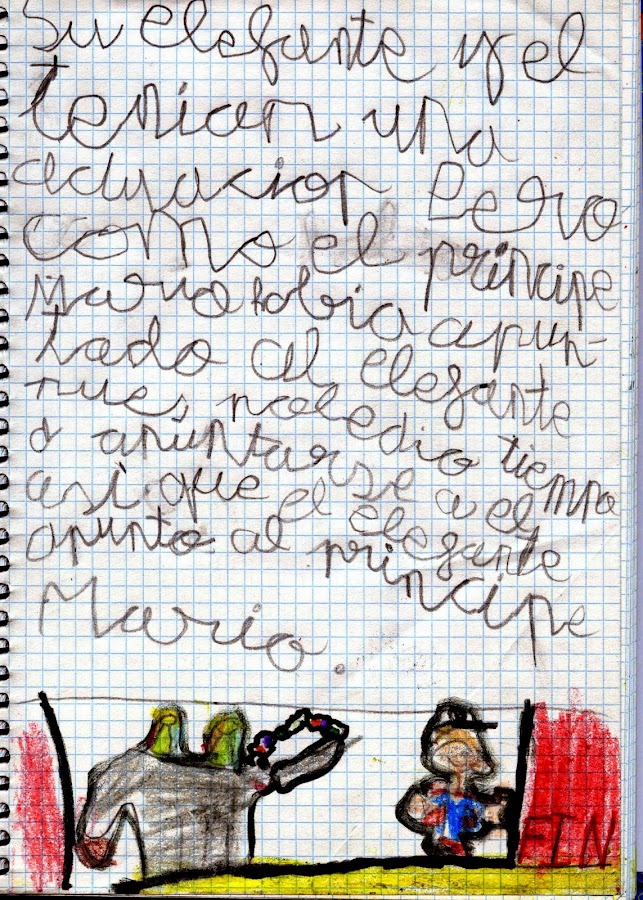 Su elefante y el
tenian una
actuacion Pero
como el principe
Mario habia apun-
tado al elefante
pues, no le dio tiempo
a apuntarse a el,
asi que el elefante
apunto al principe
Mario.
FIN